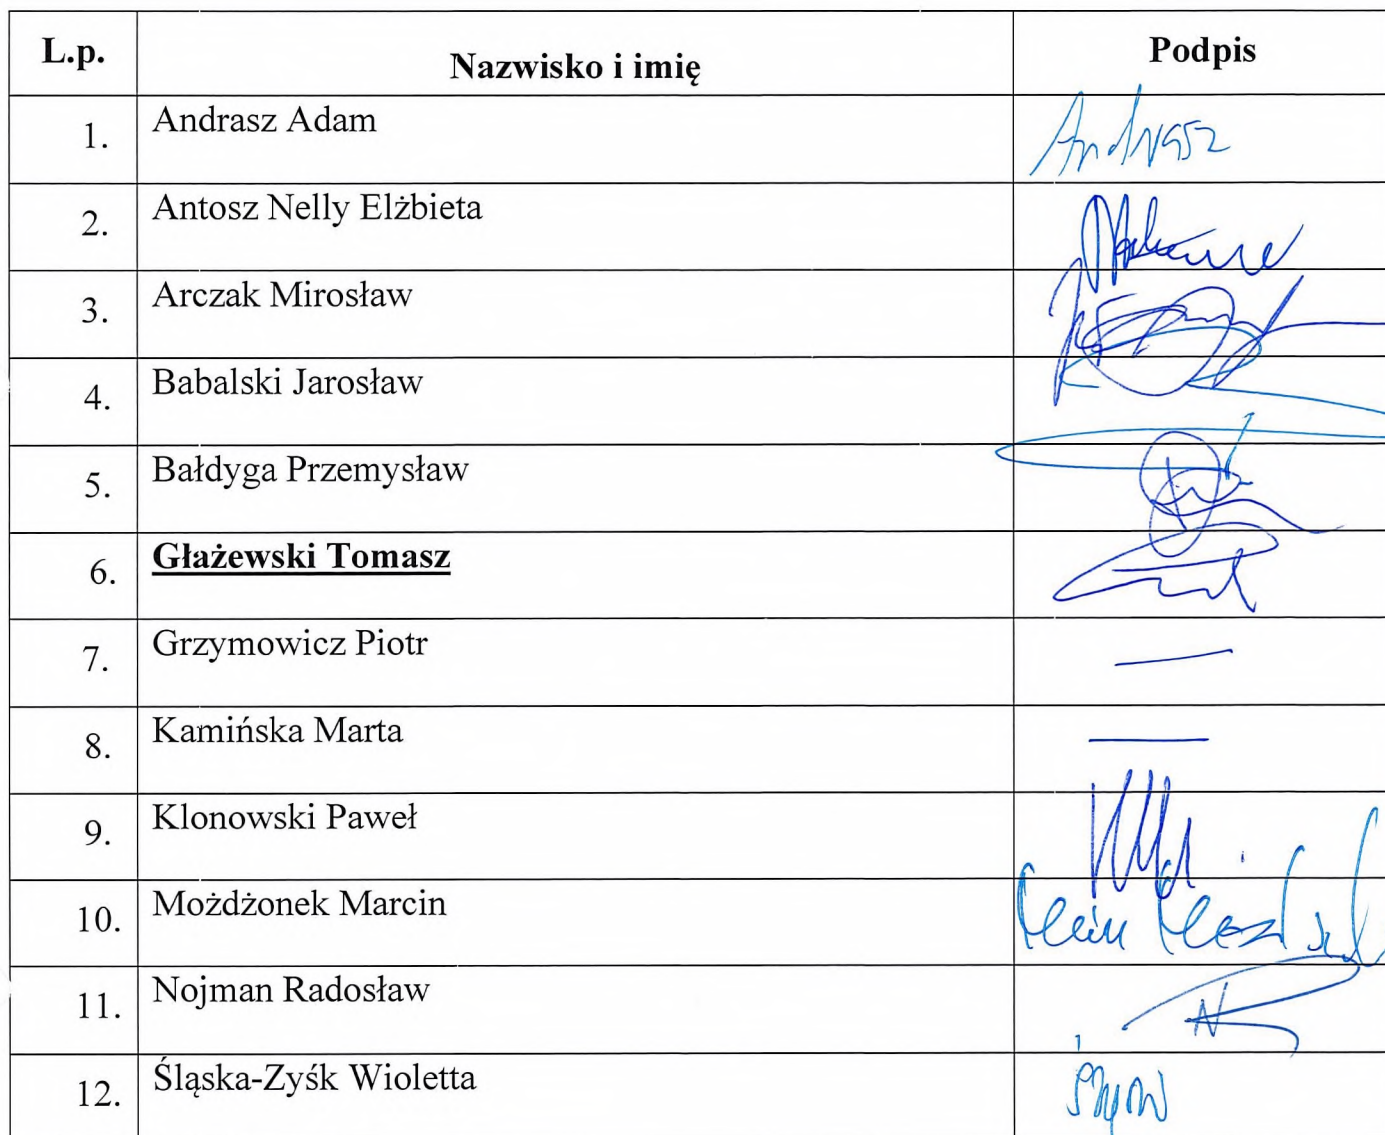 L.p. Nazwisko i imię Podpis
1. Andrasz Adam Andrasz
2. Antosz Nelly Elżbieta
3. Arczak Mirosław
4. Babalski Jarosław
5. Bałdyga Przemysław
6. Głażewski Tomasz
7. Grzymowicz Piotr —
8. Kamińska Marta —
9. Klonowski Paweł
10. Możdżonek Marcin
11. Nojman Radosław
12. Śląska-Zyśk Wioletta